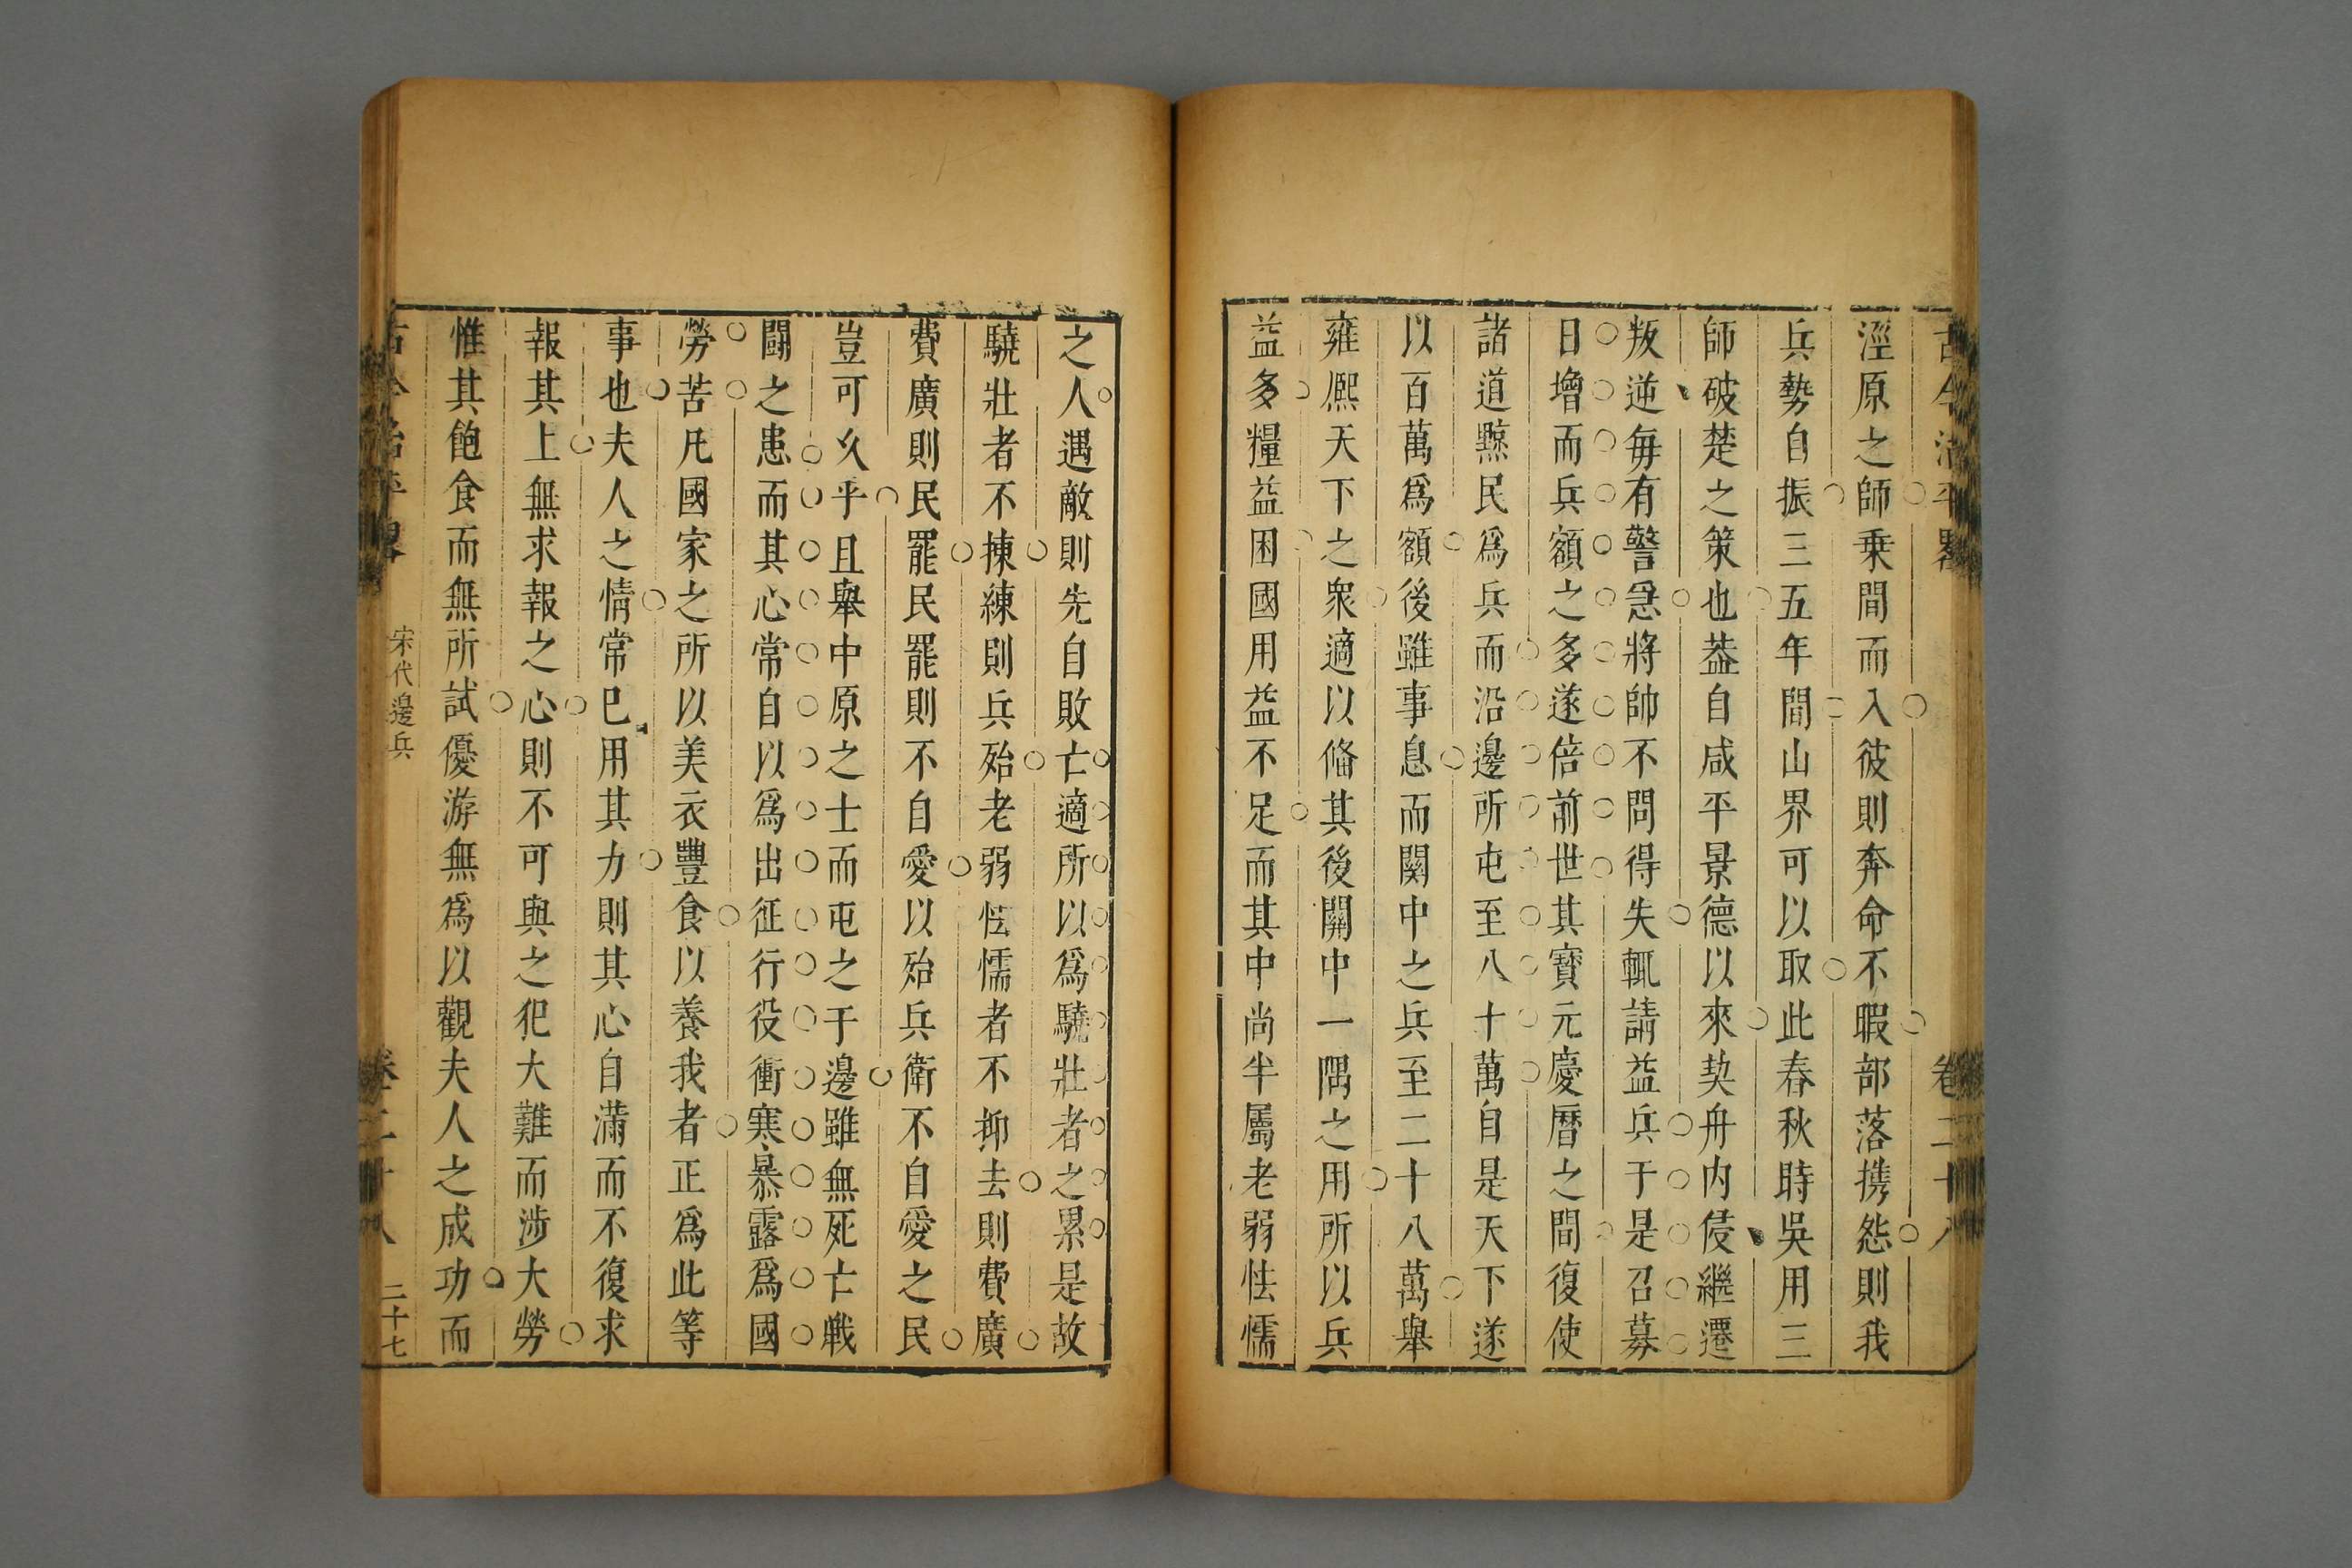 古今治平畧 卷二十八
涇原之師乗間而入彼則奔命不暇部落携怨則我
兵勢自振三五年間山界可以取此春秋時吳用三
師破楚之策也葢自咸平景德以來契丹内侵繼遷
叛逆每有警急將帥不問得失輒請益兵于是召募
日增而兵額之多遂倍前世其寶元慶曆之間復使
諸道黥民爲兵而沿邊所屯至八十萬自是天下遂
以百萬爲額後雖事息而關中之兵至二十八萬舉
雍熈天下之衆適以備其後關中一隅之用所以兵
益多糧益困國用益不足而其中尚半屬老弱怯懦
之人遇敵則先自敗亡適所以爲驍壯者之累是故
驍壯者不揀練則兵殆老弱怯懦者不抑去則費廣
費廣則民罷民罷則不自愛以殆兵衛不自愛之民
豈可乆乎且舉中原之士而屯之于邊雖無死亡戰
鬪之患而其心常自以爲出征行役衝寒暴露爲國
勞苦凡國家之所以美衣豐食以養我者正爲此等
事也夫人之情常已用其力則其心自滿而不復求
報其上無求報之心則不可與之犯大難而涉大勞
惟其飽食而無所試優游無爲以觀夫人之成功而
古今治平畧 宋代邊兵 卷二十八 二十七